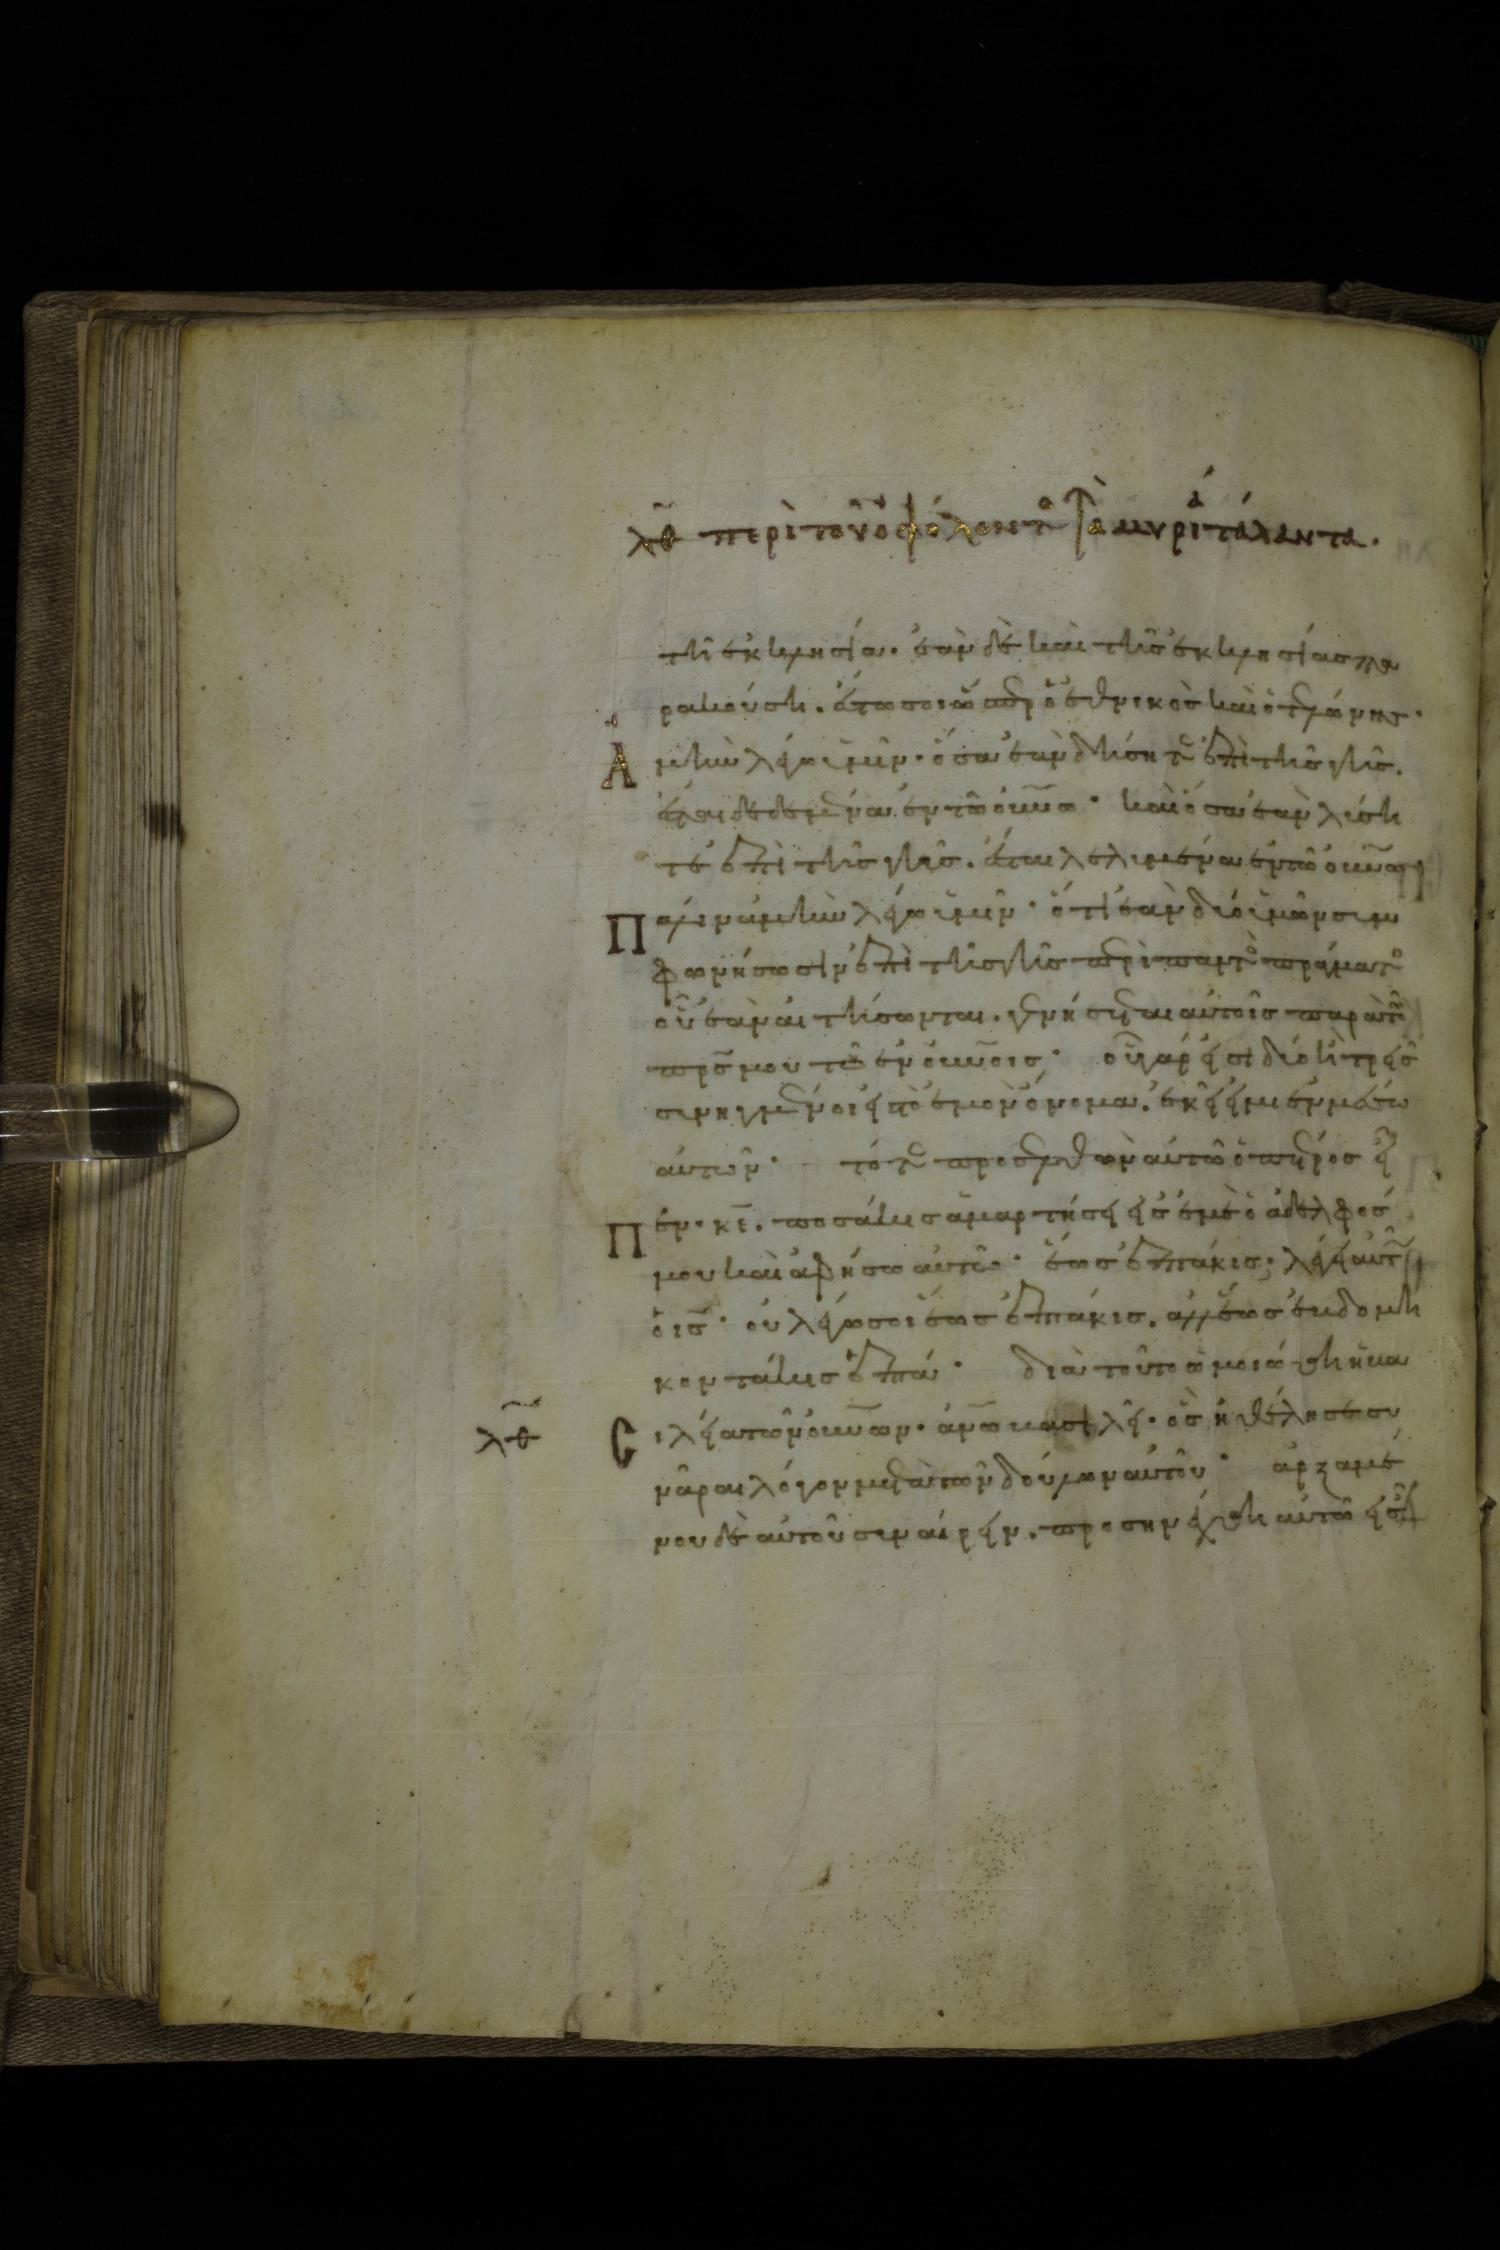 λθ περὶ τοῦ ὀφείλοντος τὰ μύρια τάλαντα.
τῆ ἐκκλησία· ἐὰν δὲ καὶ τῆς ἐκκλησίας πα
ρακούση· ἔστω σοι ὥσπερ ὁ ἐθνικὸς καὶ ὁ τελώνης·
Ἀμὴν λέγω ὑμῖν· ὅσα ἐὰν δήσητε ἐπὶ τῆς γῆς·
ἔσται δεδεμένα ἐν τῶ οὐνω· καὶ ὅσα ἐὰν λύση
τε ἐπὶ τῆς γῆς· ἔσται λελυμένα ἐν τῶ οὐνω
Πάλιν ἀμὴν λέγω ὑμῖν· ὅτι ἐὰν δύο ὑμῶν συμ
φωνήσωσιν ἐπὶ τῆς γῆς περὶ παντὸς πράγματος
οὗ ἐὰν αἰτήσωνται· γενήσεται αὐτοῖς παρὰ τοῦ
πρς μου τοῦ ἐν οὐνοις· οὗ γάρ εἰσι δύο ἢ τρεῖς
συνηγμένοι εἰς τὸ ἐμὸν ὄνομα· ἐκεῖ εἰμι ἐν μέσω
αὐτῶν· τότε προσελθὼν αὐτῶ ὁ πέτρος εἶ
Πεν· κε· ποσάκις ἁμαρτήσει εἰς ἐμὲ ὁ ἀδελφός
μου καὶ ἀφήσω αὐτῶ· ἕως ἑπτάκις· λέγει αὐτῶ
ὁ ις· οὐ λέγω σοι ἕως ἑπτάκις· ἀλλ' ἕως ἑβδομη
κοντάκις ἑπτά· διὰ τοῦτο ὡμοιώθη ἡ βα
λθ Σιλεία τῶν οὐνων· ἀνω βασιλεῖ· ὃς ἠθέλησε συ
νᾶραι λόγον μετὰ τῶν δούλων αὐτοῦ· ἀρξαμέ
νου δὲ αὐτοῦ συναίρειν· προσηνέχθη αὐτῶ εἷς